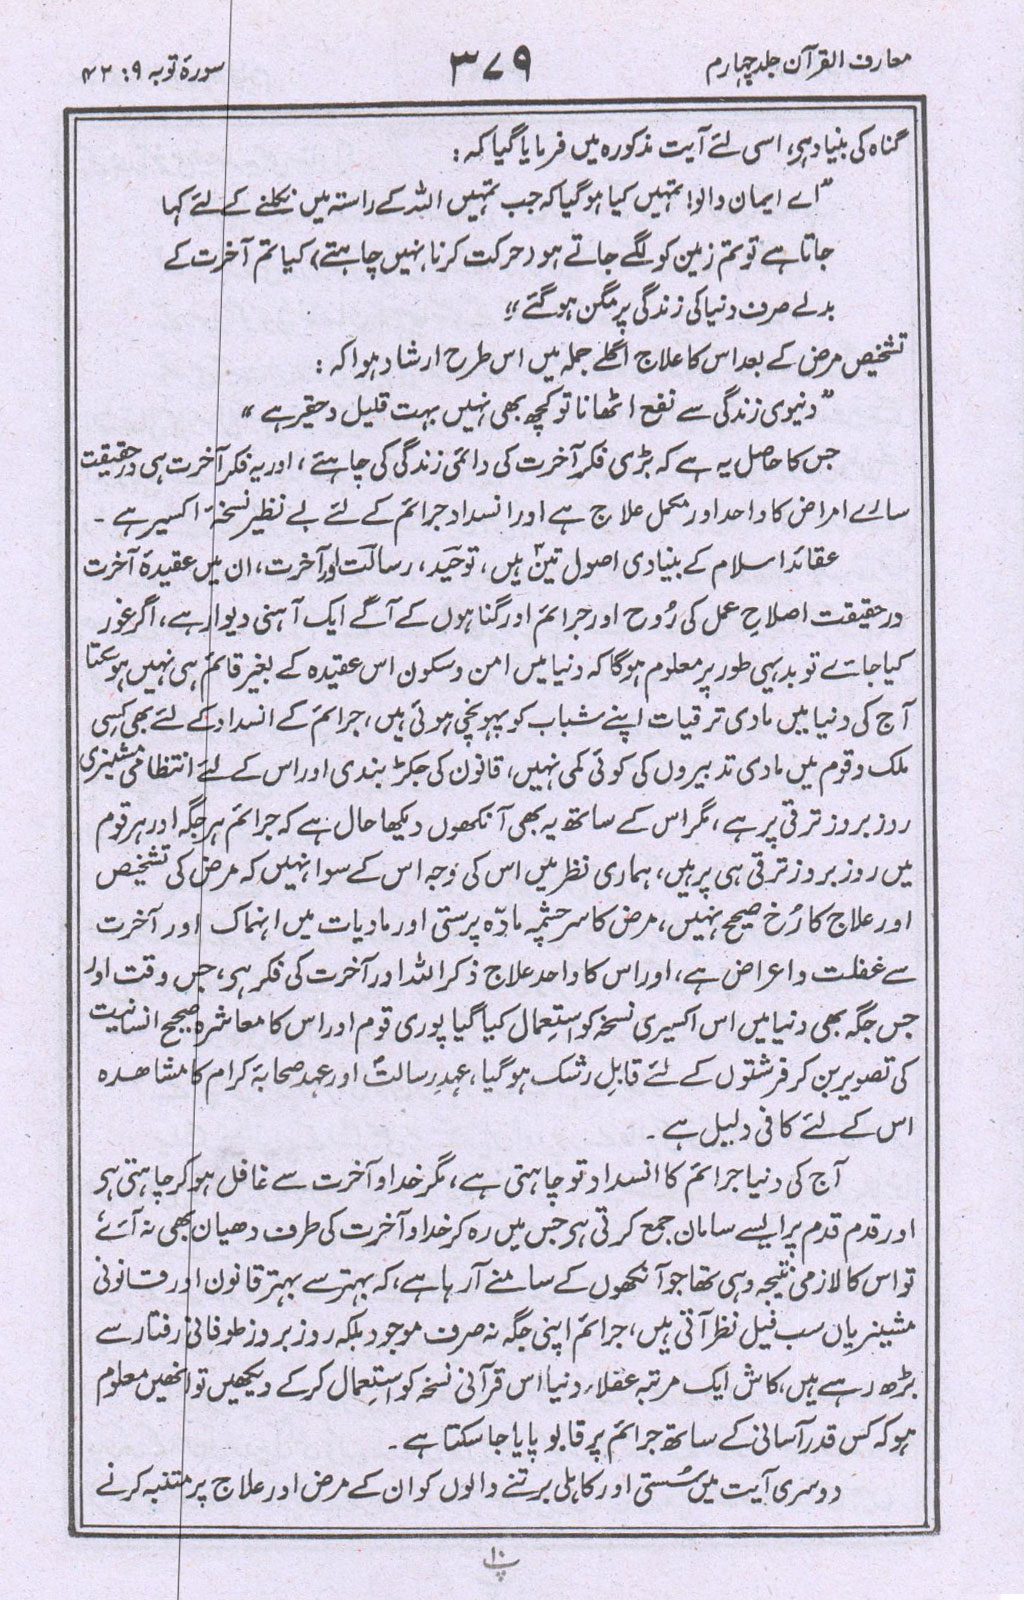 معارف القرآن جلد چہارم
۳۷۹
سورۂ توبہ ۹: ۴۲
گناہ کی بنیاد ہی، اسی لئے آیت مذکورہ میں فرمایا گیا کہ:
”اے ایمان والو! تمہیں کیا ہوگیا کہ جب تمہیں اللہ کے راستہ میں نکلنے کے لئے کہا
جاتا ہے تو تم زمین کو لگے جاتے ہو (حرکت کرنا نہیں چاہتے) کیا تم آخرت کے
بدلے صرف دنیا کی زندگی پر مگن ہوگئے“
تشخیص مرض کے بعد اس کا علاج اگلے جملہ میں اس طرح ارشاد ہوا کہ:
”دنیوی زندگی سے نفع اٹھانا تو کچھ بھی نہیں بہت قلیل و حقیر ہے“
جس کا حاصل یہ ہے کہ بڑی فکر آخرت کی دائمی زندگی کی چاہئے، اور یہ فکرِ آخرت ہی درحقیقت
سارے امراض کا واحد اور مکمل علاج ہے اور انسداد جرائم کے لئے بے نظیر نسخۂ اکسیر ہے۔
عقائد اسلام کے بنیادی اصول تین ہیں، توحید، رسالت اور آخرت، ان میں عقیدۂ آخرت
درحقیقت اصلاحِ عمل کی رُوح اور جرائم اور گناہوں کے آگے ایک آہنی دیوار ہے، اگر غور
کیا جائے تو بدیہی طور پر معلوم ہوگا کہ دنیا میں امن و سکون اس عقیدہ کے بغیر قائم ہی نہیں ہو سکتا
آج کی دنیا میں مادی ترقیات اپنے شباب کو پہونچی ہوئی ہیں، جرائم کے انسداد کے لئے بھی کسی
ملک و قوم میں مادی تدبیروں کی کوئی کمی نہیں، قانون کی جکڑ بندی اور اس کے لئے انتظامی مشینری
روز بروز ترقی پر ہے، مگر اس کے ساتھ یہ بھی آنکھوں دیکھا حال ہے کہ جرائم ہر جگہ اور ہر قوم
میں روز بروز ترقی ہی پر ہیں، ہماری نظر میں اس کی وجہ اس کے سوا نہیں کہ مرض کی تشخیص
اور علاج کا رُخ صحیح نہیں، مرض کا سرچشمہ مادّہ پرستی اور مادیات میں انہماک اور آخرت
سے غفلت و اعراض ہے، اور اس کا واحد علاج ذکر اللہ اور آخرت کی فکر ہی، جس وقت اور
جس جگہ بھی دنیا میں اس اکسیری نسخہ کو استعمال کیا گیا پوری قوم اور اس کا معاشرہ صحیح انسانیت
کی تصویر بن کر فرشتوں کے لئے قابلِ رشک ہوگیا، عہدِ رسالت اور عہد صحابۂ کرام کا مشاہدہ
اس کے لئے کافی دلیل ہے۔
آج کی دنیا جرائم کا انسداد تو چاہتی ہے، مگر خدا و آخرت سے غافل ہو کر چاہتی ہی
اور قدم قدم پر ایسے سامان جمع کرتی ہی جس میں رہ کر خدا و آخرت کی طرف دھیان بھی نہ آئے،
تو اس کا لازمی نتیجہ وہی تھا جو آنکھوں کے سامنے آرہا ہے، کہ بہتر سے بہتر قانون اور قانونی
مشینریاں سب فیل نظر آتی ہیں، جرائم اپنی جگہ نہ صرف موجود بلکہ روز بروز طوفانی رفتار سے
بڑھ رہے ہیں، کاش ایک مرتبہ عقلاء دنیا اس قرآنی نسخہ کو استعمال کرکے دیکھیں تو انھیں معلوم
ہو کہ کس قدر آسانی کے ساتھ جرائم پر قابو پایا جاسکتا ہے۔
دوسری آیت میں سُستی اور کاہلی برتنے والوں کو ان کے مرض اور علاج پر متنبہ کرنے
پ ۱۰